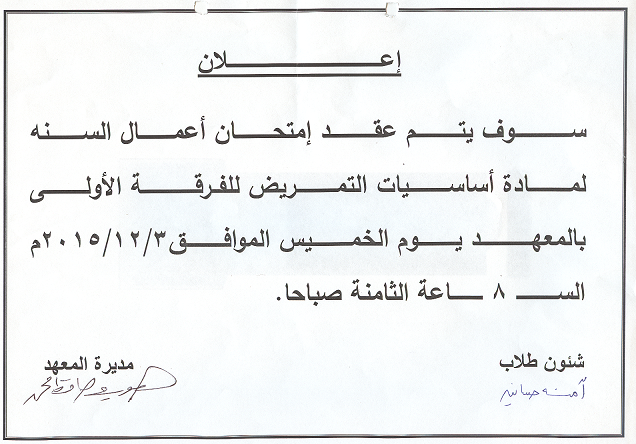 إعـــــــــلان
سـوف يتـم عقـد إمتحـان أعمـال السـنه
لمـادة أساسـيات التمـريض للفرقـة الأولـى
بالمعهـد يـوم الخمـيس الموافـق٢٠١٥/١٢/٣م
السـ ٨ ـاعة الثامنة صباحا.
شئون طلاب
مديرة المعهد